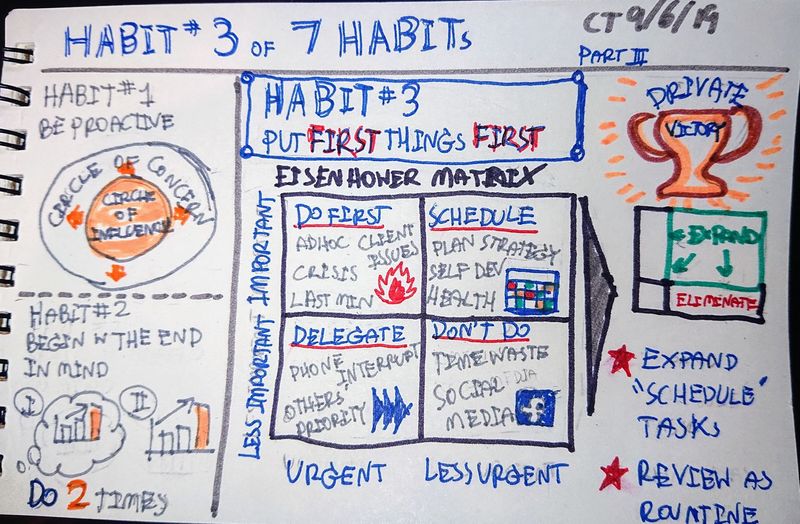 HABIT #3 OF 7 HABITS
CT 9/6/19
PART III
HABIT #1
BE PROACTIVE
CIRCLE OF CONCERN
CIRCLE
OF
INFLUENCE
HABIT #2
BEGIN W THE END
IN MIND
I
II
DO 2 TIMES
HABIT #3
PUT FIRST THINGS FIRST
EISENHOWER MATRIX
LESS IMPORTANT IMPORTANT
DO FIRST
ADHOC CLIENT
ISSUES
CRISIS
LAST MIN
SCHEDULE
PLAN STRATEGY
SELF DEV
HEALTH
DELEGATE
PHONE INTERRUPT
OTHERS'
PRIORITY
DON'T DO
TIME WASTE
SOCIAL
MEDIA
f
URGENT LESS URGENT
PRIVATE
VICTORY
EXPAND
ELIMINATE
EXPAND
"SCHEDULE"
TASKS
REVIEW AS
ROUTINE